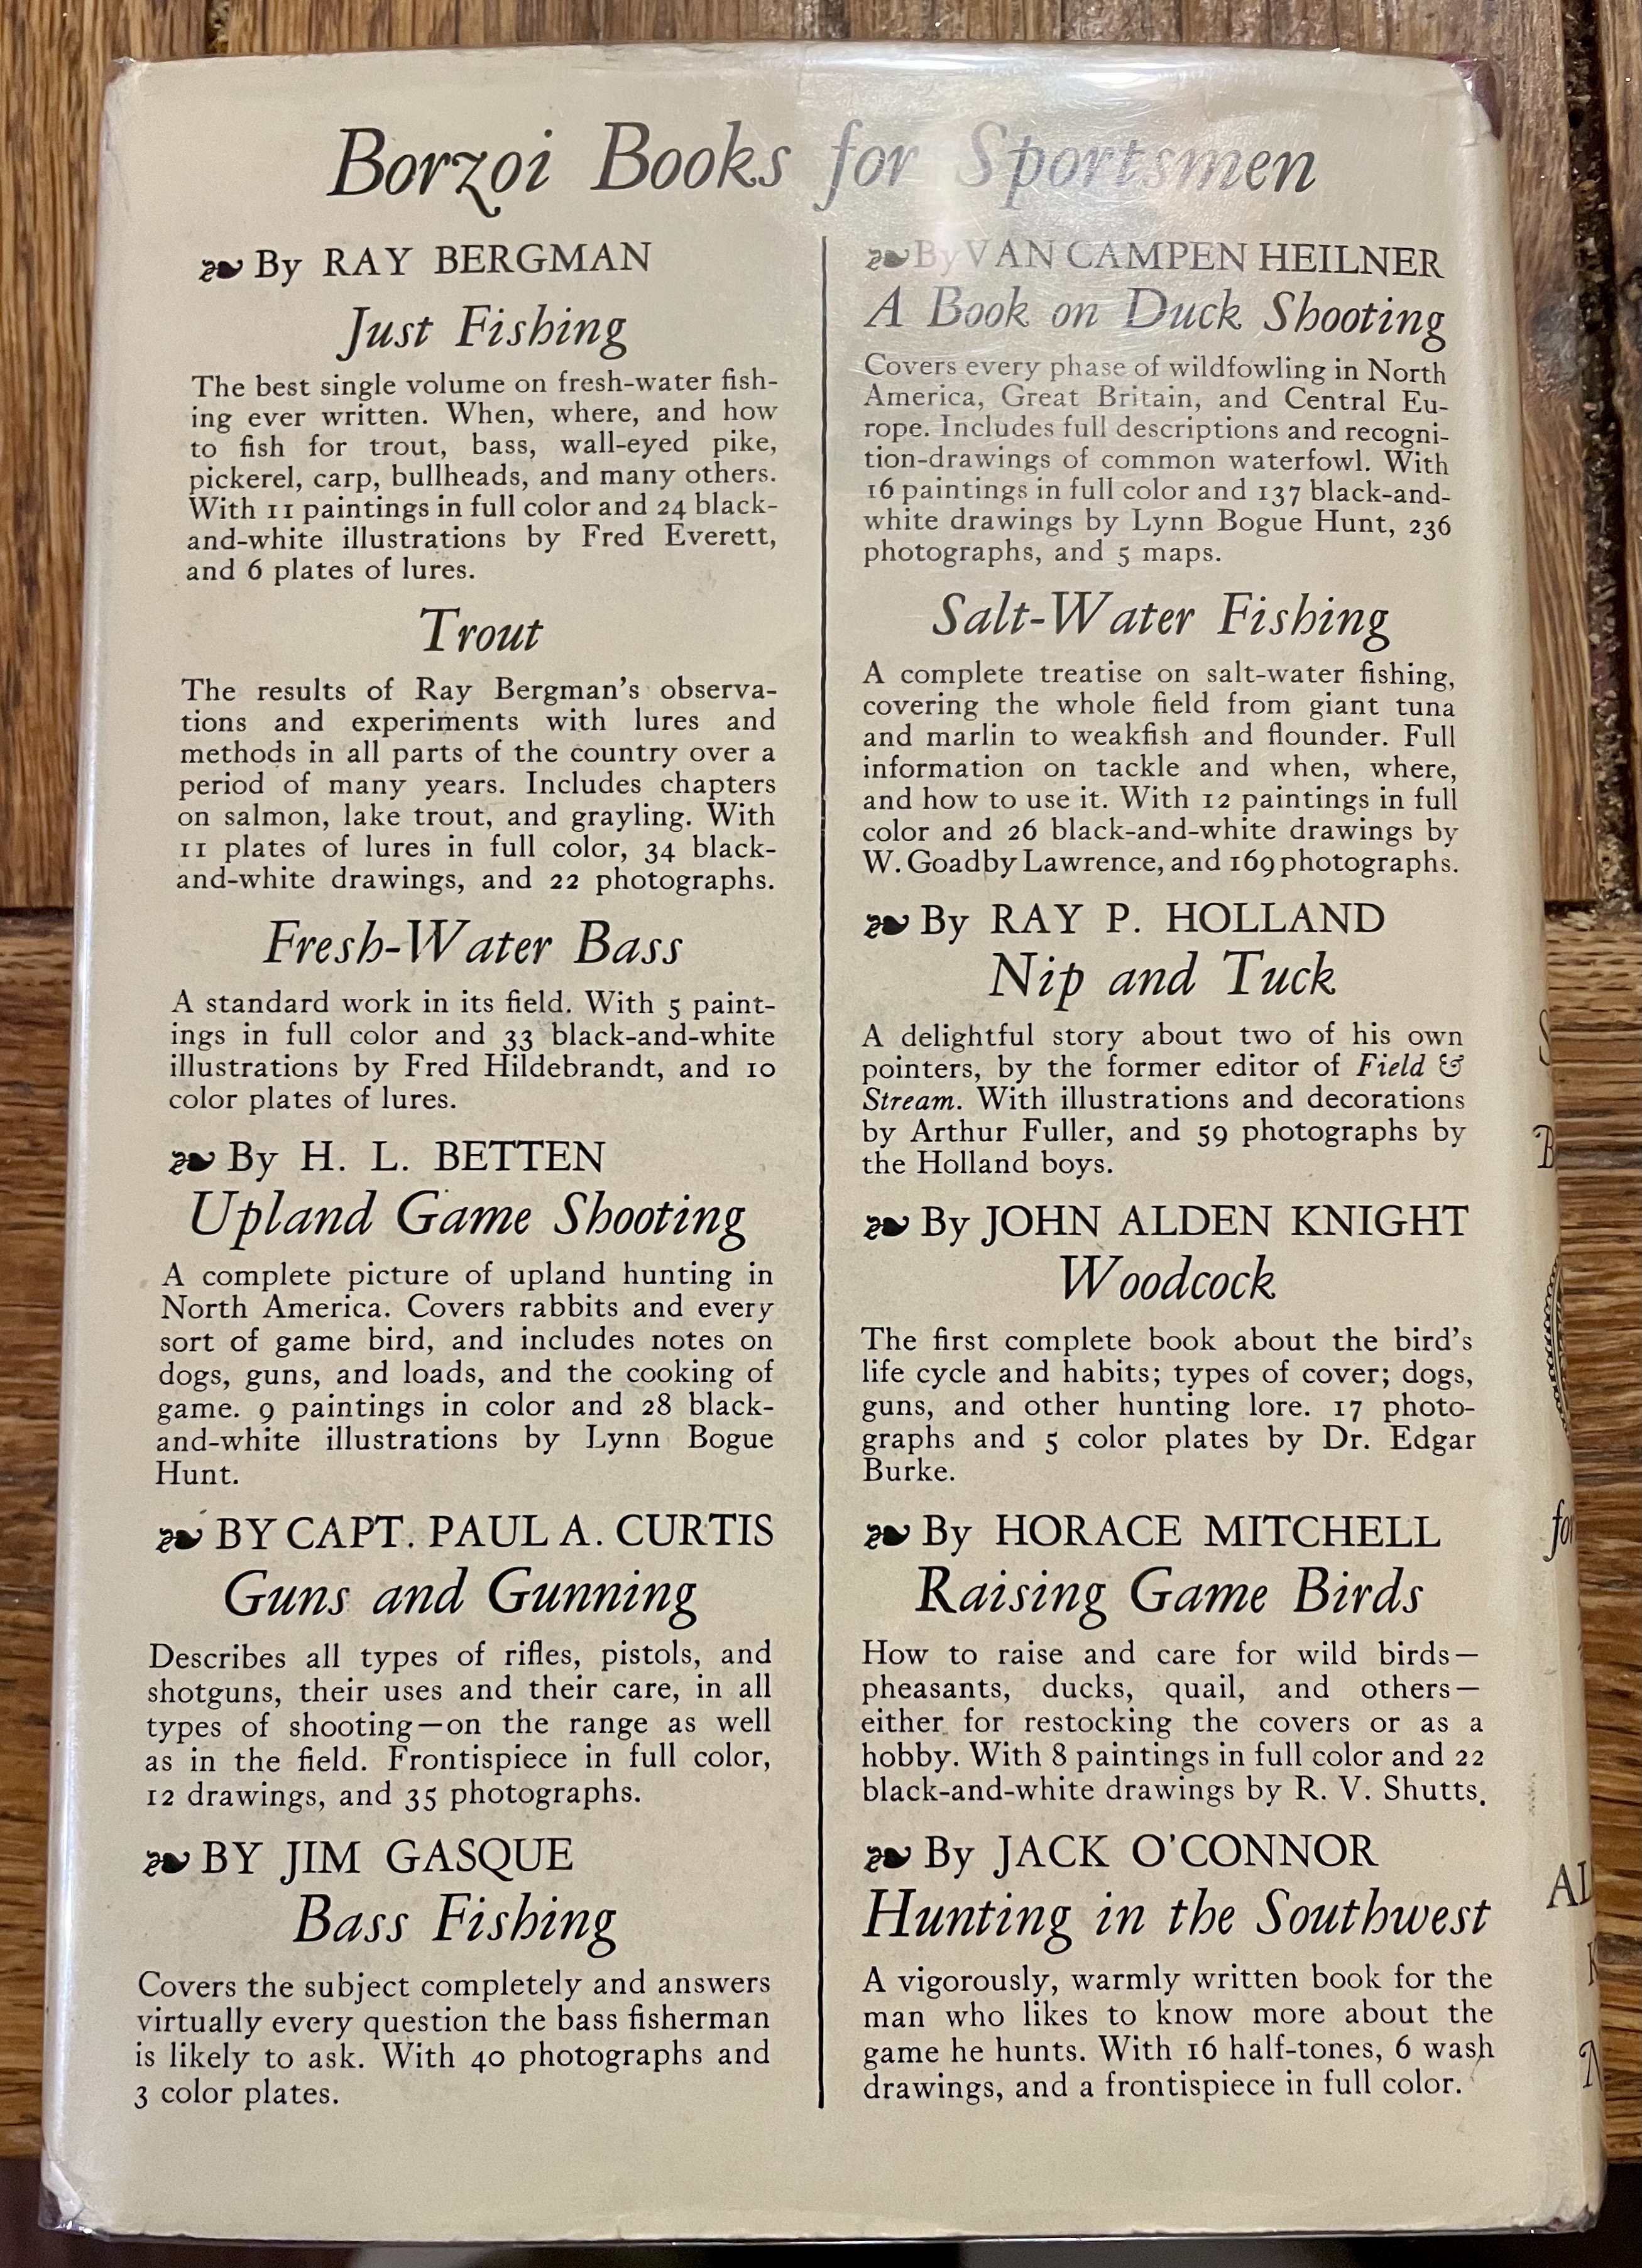 Borzoi Books for Sportsmen
By RAY BERGMAN
Just Fishing
The best single volume on fresh-water fish-
ing ever written. When, where, and how
to fish for trout, bass, wall-eyed pike,
pickerel, carp, bullheads, and many others.
With 11 paintings in full color and 24 black-
and-white illustrations by Fred Everett,
and 6 plates of lures.
Trout
The results of Ray Bergman's observa-
tions and experiments with lures and
methods in all parts of the country over a
period of many years. Includes chapters
on salmon, lake trout, and grayling. With
11 plates of lures in full color, 34 black-
and-white drawings, and 22 photographs.
Fresh-Water Bass
A standard work in its field. With 5 paint-
ings in full color and 33 black-and-white
illustrations by Fred Hildebrandt, and 10
color plates of lures.
By H. L. BETTEN
Upland Game Shooting
A complete picture of upland hunting in
North America. Covers rabbits and every
sort of game bird, and includes notes on
dogs, guns, and loads, and the cooking of
game. 9 paintings in color and 28 black-
and-white illustrations by Lynn Bogue
Hunt.
BY CAPT. PAUL A. CURTIS
Guns and Gunning
Describes all types of rifles, pistols, and
shotguns, their uses and their care, in all
types of shooting—on the range as well
as in the field. Frontispiece in full color,
12 drawings, and 35 photographs.
BY JIM GASQUE
Bass Fishing
Covers the subject completely and answers
virtually every question the bass fisherman
is likely to ask. With 40 photographs and
3 color plates.
By VAN CAMPEN HEILNER
A Book on Duck Shooting
Covers every phase of wildfowling in North
America, Great Britain, and Central Eu-
rope. Includes full descriptions and recogni-
tion-drawings of common waterfowl. With
16 paintings in full color and 137 black-and-
white drawings by Lynn Bogue Hunt, 236
photographs, and 5 maps.
Salt-Water Fishing
A complete treatise on salt-water fishing,
covering the whole field from giant tuna
and marlin to weakfish and flounder. Full
information on tackle and when, where,
and how to use it. With 12 paintings in full
color and 26 black-and-white drawings by
W. Goadby Lawrence, and 169 photographs.
By RAY P. HOLLAND
Nip and Tuck
A delightful story about two of his own
pointers, by the former editor of Field &
Stream. With illustrations and decorations
by Arthur Fuller, and 59 photographs by
the Holland boys.
By JOHN ALDEN KNIGHT
Woodcock
The first complete book about the bird's
life cycle and habits; types of cover; dogs,
guns, and other hunting lore. 17 photo-
graphs and 5 color plates by Dr. Edgar
Burke.
By HORACE MITCHELL
Raising Game Birds
How to raise and care for wild birds—
pheasants, ducks, quail, and others—
either for restocking the covers or as a
hobby. With 8 paintings in full color and 22
black-and-white drawings by R. V. Shutts.
By JACK O'CONNOR
Hunting in the Southwest
A vigorously, warmly written book for the
man who likes to know more about the
game he hunts. With 16 half-tones, 6 wash
drawings, and a frontispiece in full color.